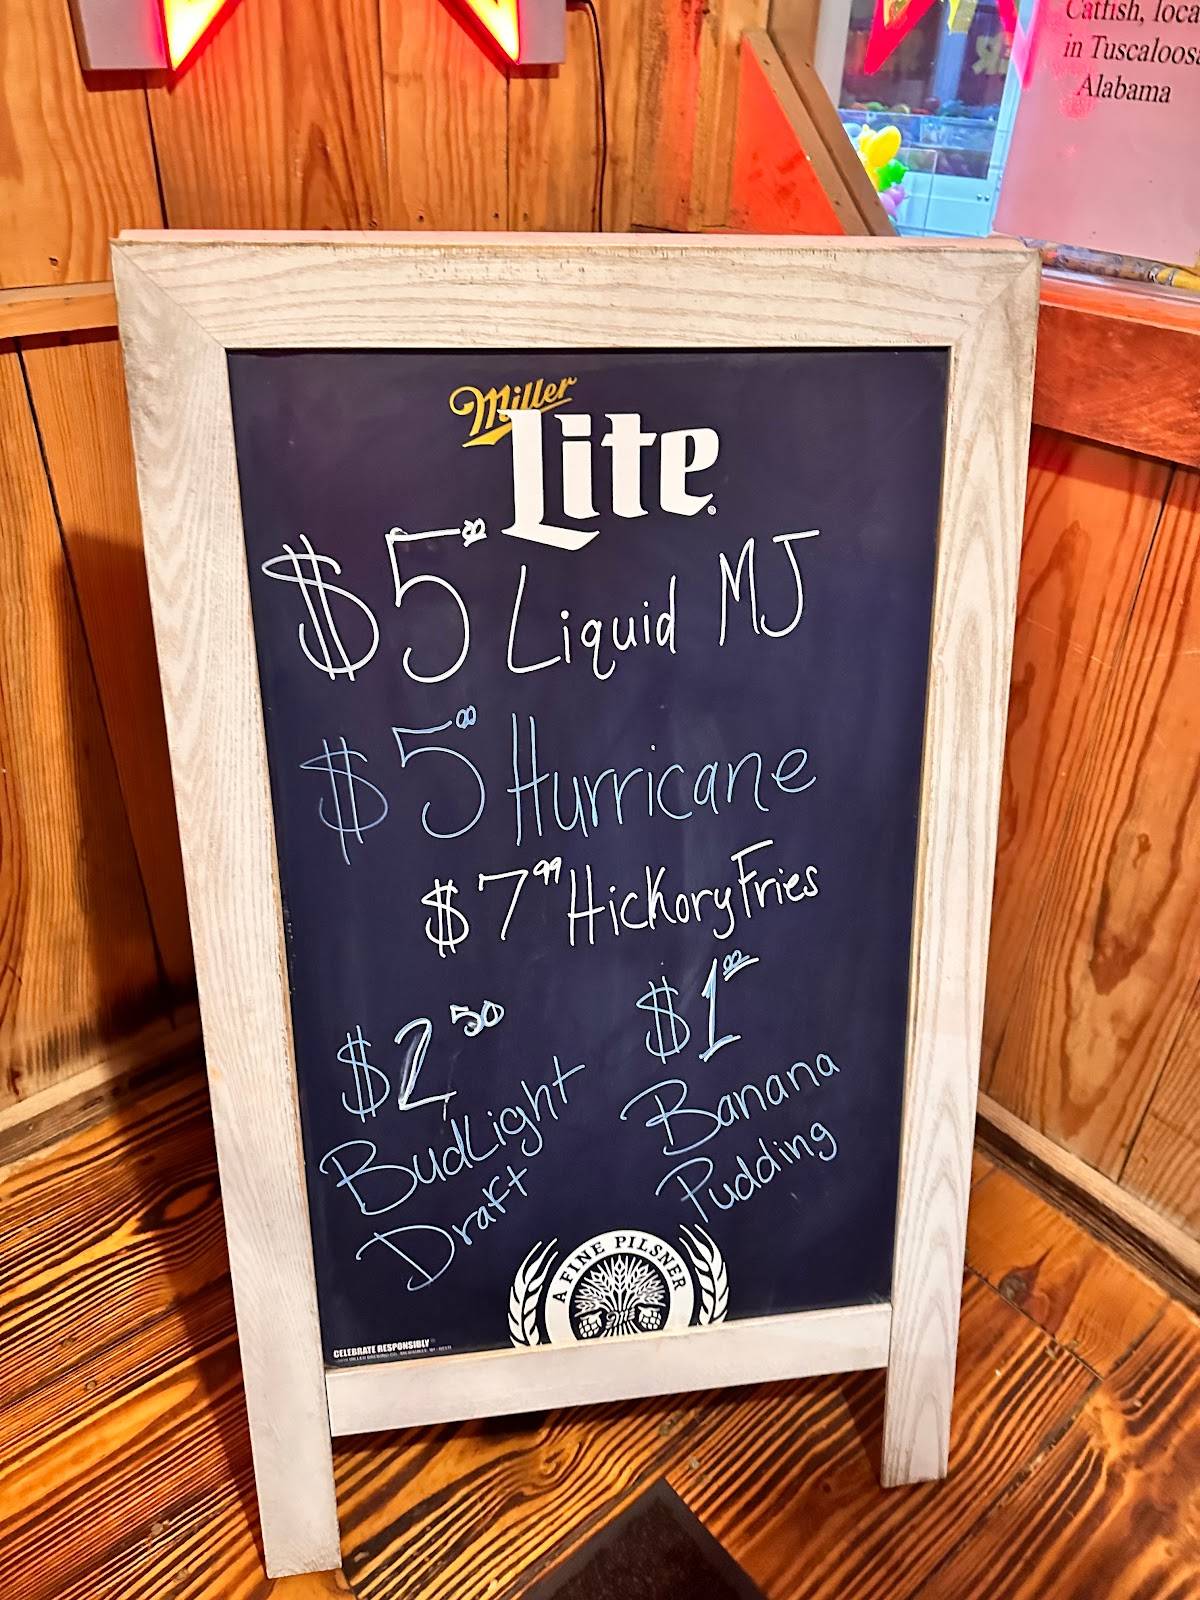 Catfish, loca
in Tuscaloosa
Alabama
Miller
Lite
$5.00 Liquid MJ
$5.00 Hurricane
$7.99 Hickory Fries
$2.50
Bud Light
Draft
$1.00
Banana
Pudding
A FINE PILSNER
CELEBRATE RESPONSIBLY